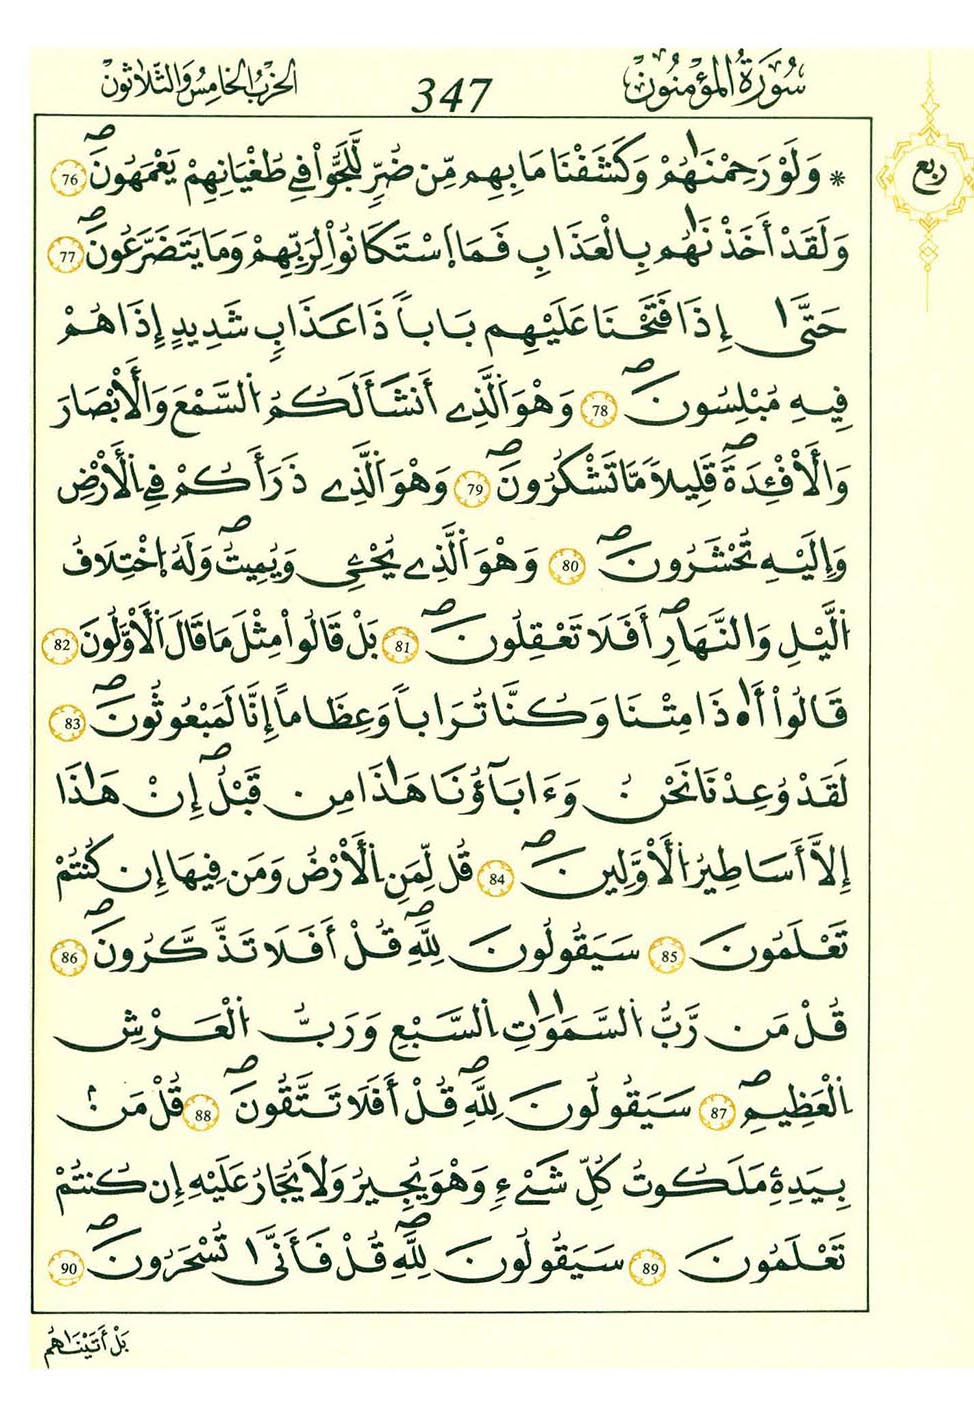 سُورَةُ الْمُؤْمِنُونَ 347 الحِزْبُ الخَامِسُ وَالثَّلَاثُونَ
ربع
* وَلَوْ رَحِمْنَٰهُمْ وَكَشَفْنَا مَا بِهِم مِّن ضُرٍّ لَّلَجُّواْ فِي طُغْيَانِهِمْ يَعْمَهُونَۖ 76
وَلَقَدْ أَخَذْنَٰهُم بِالْعَذَابِ فَمَا اَسْتَكَانُواْ لِرَبِّهِمْ وَمَا يَتَضَرَّعُونَۖ 77
حَتَّىٰ إِذَا فَتَحْنَا عَلَيْهِم بَاباٗ ذَا عَذَابٍ شَدِيدٍ إِذَا هُمْ
فِيهِ مُبْلِسُونَۖ 78 وَهْوَ اَلَّذِے أَنشَأَ لَكُمُ اُلسَّمْعَ وَالْأَبْصَارَ
وَالْأَفْئِدَةَۖ قَلِيلاٗ مَّا تَشْكُرُونَۖ 79 وَهْوَ اَلَّذِے ذَرَأَكُمْ فِي اِلْأَرْضِ
وَإِلَيْهِ تُحْشَرُونَۖ 80 وَهْوَ اَلَّذِے يُحْيِۦ وَيُمِيتُۖ وَلَهُ اُخْتِلَافُ
اُلَّيْلِ وَالنَّهَارِۖ أَفَلَا تَعْقِلُونَۖ 81 بَلْ قَالُواْ مِثْلَ مَا قَالَ اَلْأَوَّلُونَ 82
قَالُواْ أَٰ۟ذَا مِتْنَا وَكُنَّا تُرَاباٗ وَعِظَاماً إِنَّا لَمَبْعُوثُونَۖ 83
لَقَدْ وُعِدْنَا نَحْنُ وَءَابَآؤُنَا هَٰذَا مِن قَبْلُۖ إِنْ هَٰذَا
إِلَّا أَسَاطِيرُ اُلْأَوَّلِينَۖ 84 قُل لِّمَنِ اِلْأَرْضُ وَمَن فِيهَا إِن كُنتُمْ
تَعْلَمُونَ 85 سَيَقُولُونَ لِلَّهِۖ قُلْ أَفَلَا تَذَّكَّرُونَۖ 86
قُلْ مَن رَّبُّ اُلسَّمَٰوَٰتِ اِلسَّبْعِ وَرَبُّ اُلْعَرْشِ
اِلْعَظِيمِۖ 87 سَيَقُولُونَ لِلَّهِۖ قُلْ أَفَلَا تَتَّقُونَۖ 88 قُلْ مَنۢ
بِيَدِهِۦ مَلَكُوتُ كُلِّ شَےْءٖ وَهْوَ يُجِيرُ وَلَا يُجَارُ عَلَيْهِ إِن كُنتُمْ
تَعْلَمُونَ 89 سَيَقُولُونَ لِلَّهِۖ قُلْ فَأَنَّىٰ تُسْحَرُونَۖ 90
بَلْ أَتَيْنَٰهُم